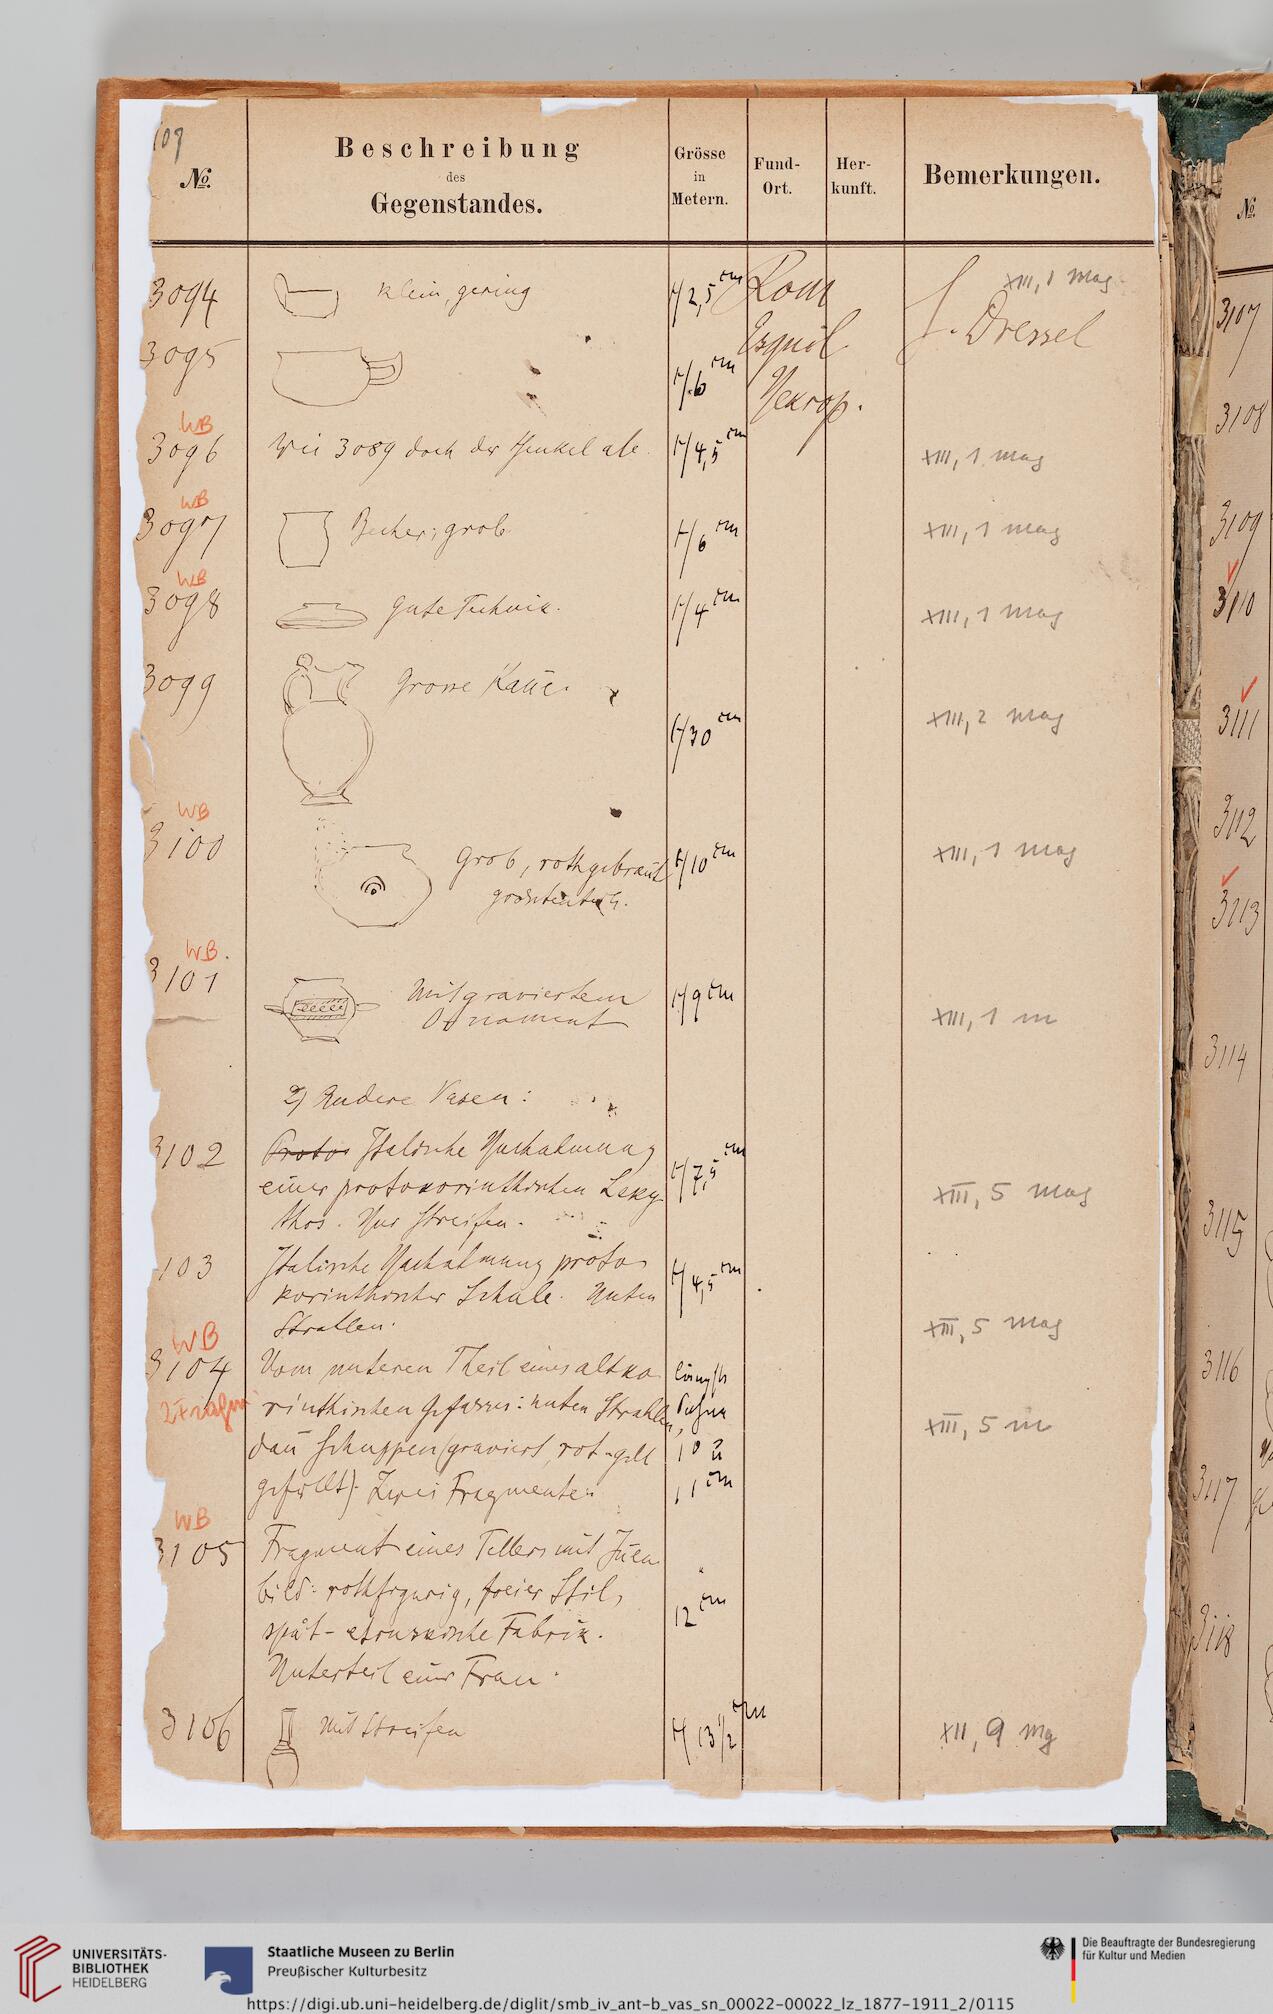 109
No.
Beschreibung
des
Gegenstandes.
Grösse
in
Metern.
Fund-
Ort.
Her-
kunft.
Bemerkungen.
3094 klein, gering H/2,5 cm Rom XIII, 1 mag
Esquil. Dressel
3095 H/6 cm Nekrop.
WB
3096 Wie 3089 doch der Henkel ab. H/4,5 cm XIII, 1 mag
WB
3097 Becher; grob H/6 cm XIII, 1 mag
WB
3098 Gute Technik. H/4 cm XIII, 1 mag
3099 Grosse Kanne. H/30 cm XIII, 2 mag
WB
3100 Grob, rothgebrannt H/10 cm XIII, 1 mag
WB.
3101 Mit graviertem H/9 cm XIII, 1 m
Ornament
2) Andere Vasen:
3102 Proto Italische Nachahmung H/7,5 cm
einer protokorinthischen Leky- XIII, 5 mag
thos. Nur Streifen.
103 Italische Nachahmung proto- H/4,5 cm
korinthischer Schale. Unten
Strahlen. XIII, 5 mag
WB
3104 Vom unteren Theil eines altko-
2 Fragm rinthischen Gefässes: unten Strahlen, XIII, 5 m
dann Schuppen (graviert, rot-gelb 10 u
gefüllt). Zwei Fragmente. 11 cm
WB
3105 Fragment eines Tellers mit Innen-
bild: rothfigurig, freier Stil, 12 cm
spät-etruskische Fabrik.
Unterteil einer Frau.
3106 Mit Streifen H. 13 1/2 cm XII, 9 mg
No.
3107
3108
3109
3110
3111
3112
3113
3114
3115
3116
3117
3118
UNIVERSITÄTS-
BIBLIOTHEK
HEIDELBERG
Staatliche Museen zu Berlin
Preußischer Kulturbesitz
Die Beauftragte der Bundesregierung
für Kultur und Medien
https://digi.ub.uni-heidelberg.de/diglit/smb_iv_ant-b_vas_sn_00022-00022_lz_1877-1911_2/0115